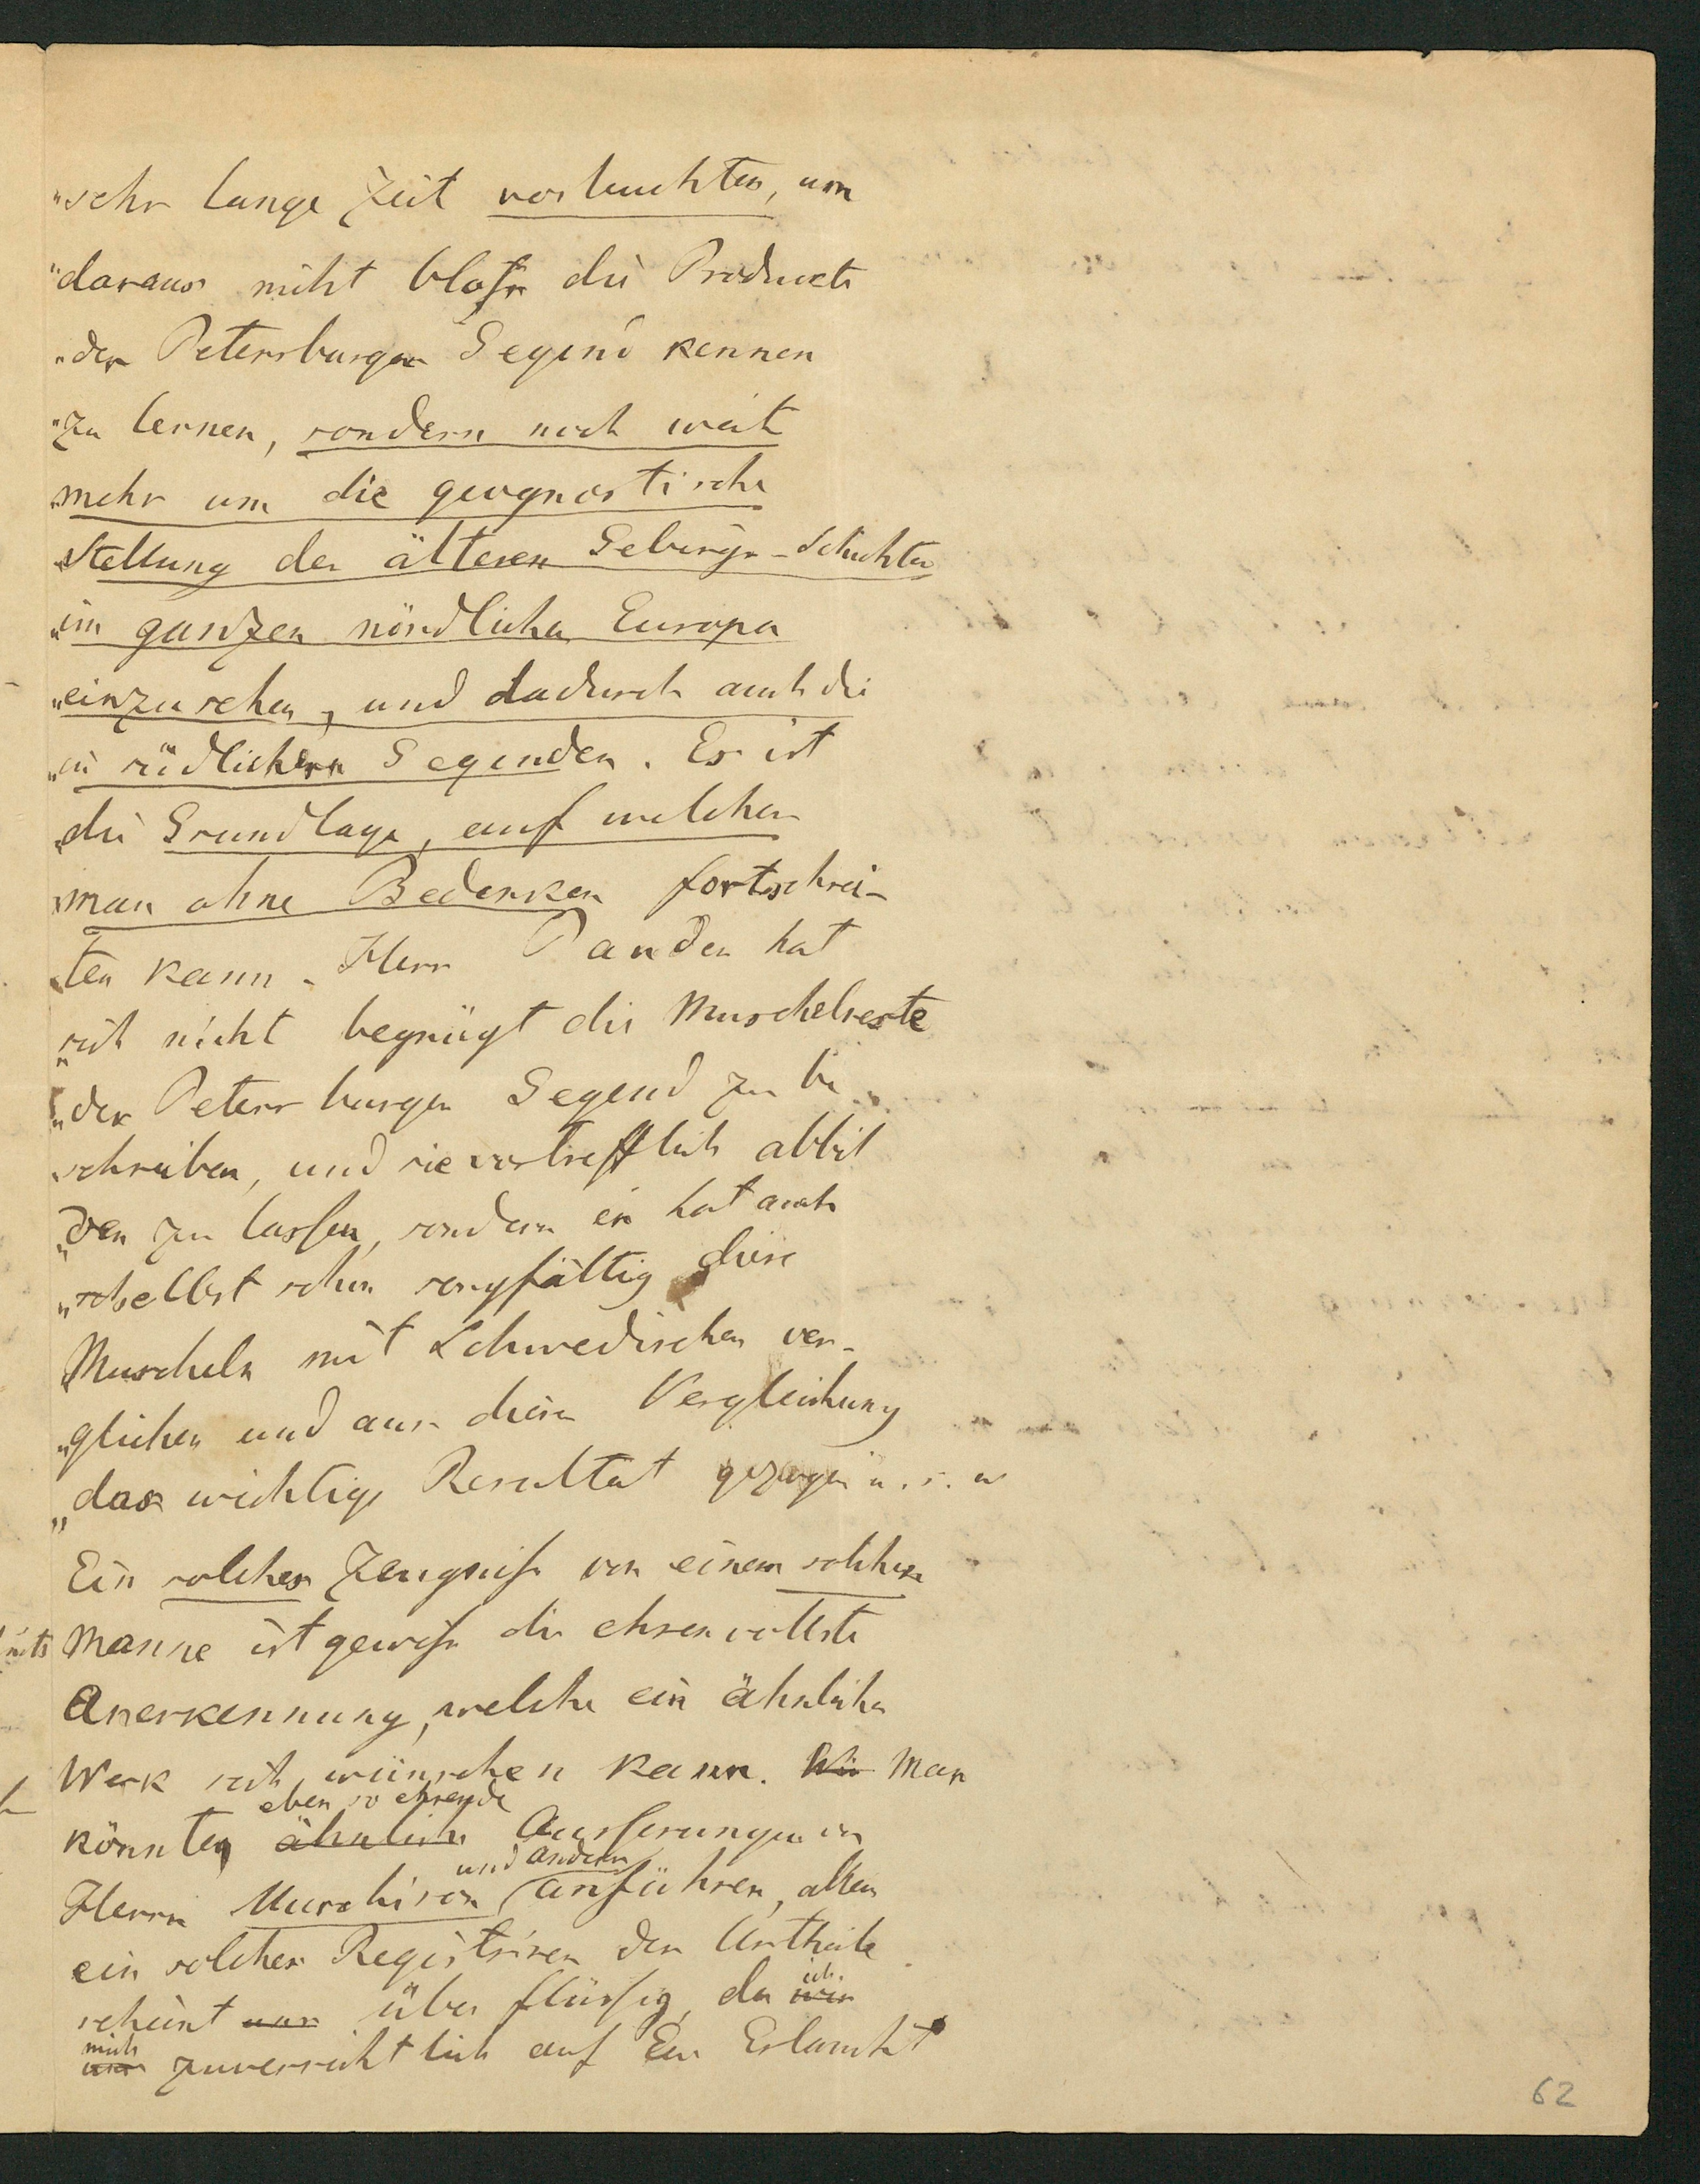 "sehr lange Zeit vorleuchten, um
"daraus nicht bloß die Producte
"der Petersburger Gegend kennen
"zu lernen, sondern noch weit
"mehr um die geognostische
"Stellung der älteren Gebirgs-Schichten
"im ganzen nördlichen Europa
"einzusehen, und dadurch auch die
"in südlichern Gegenden. Es ist
"die Grundlage, auf welcher
"man ohne Bedenken fortschrei-
"ten kann. Herr Pander hat
"sich nicht begnügt die Muschelreste
"der Petersburger Gegend zu be-
"schreiben, und sie vortrefflich abbil
"den zu lassen, sondern er hat auch
"selbst schon sorgfältig diese
"Muscheln mit Schwedischen ver-
"glichen und aus dieser Vergleichung
"das wichtige Resultat gezogen u. s. w
Ein solches Zeugniß von einem solchen
Manne ist gewiß die ehrenvollste
Anerkennung, welche ein ähnliches
Werk sich wünschen kann. Wir Man
eben so ehrende
könnten ähnliche Äusserungen von
und andern
Herrn Murchison anführen, allein
ein solches Registriren der Urtheile
scheint uns überflüssig, da wir
ich
mich
uns zuversichtlich auf Ew Erlaucht
62